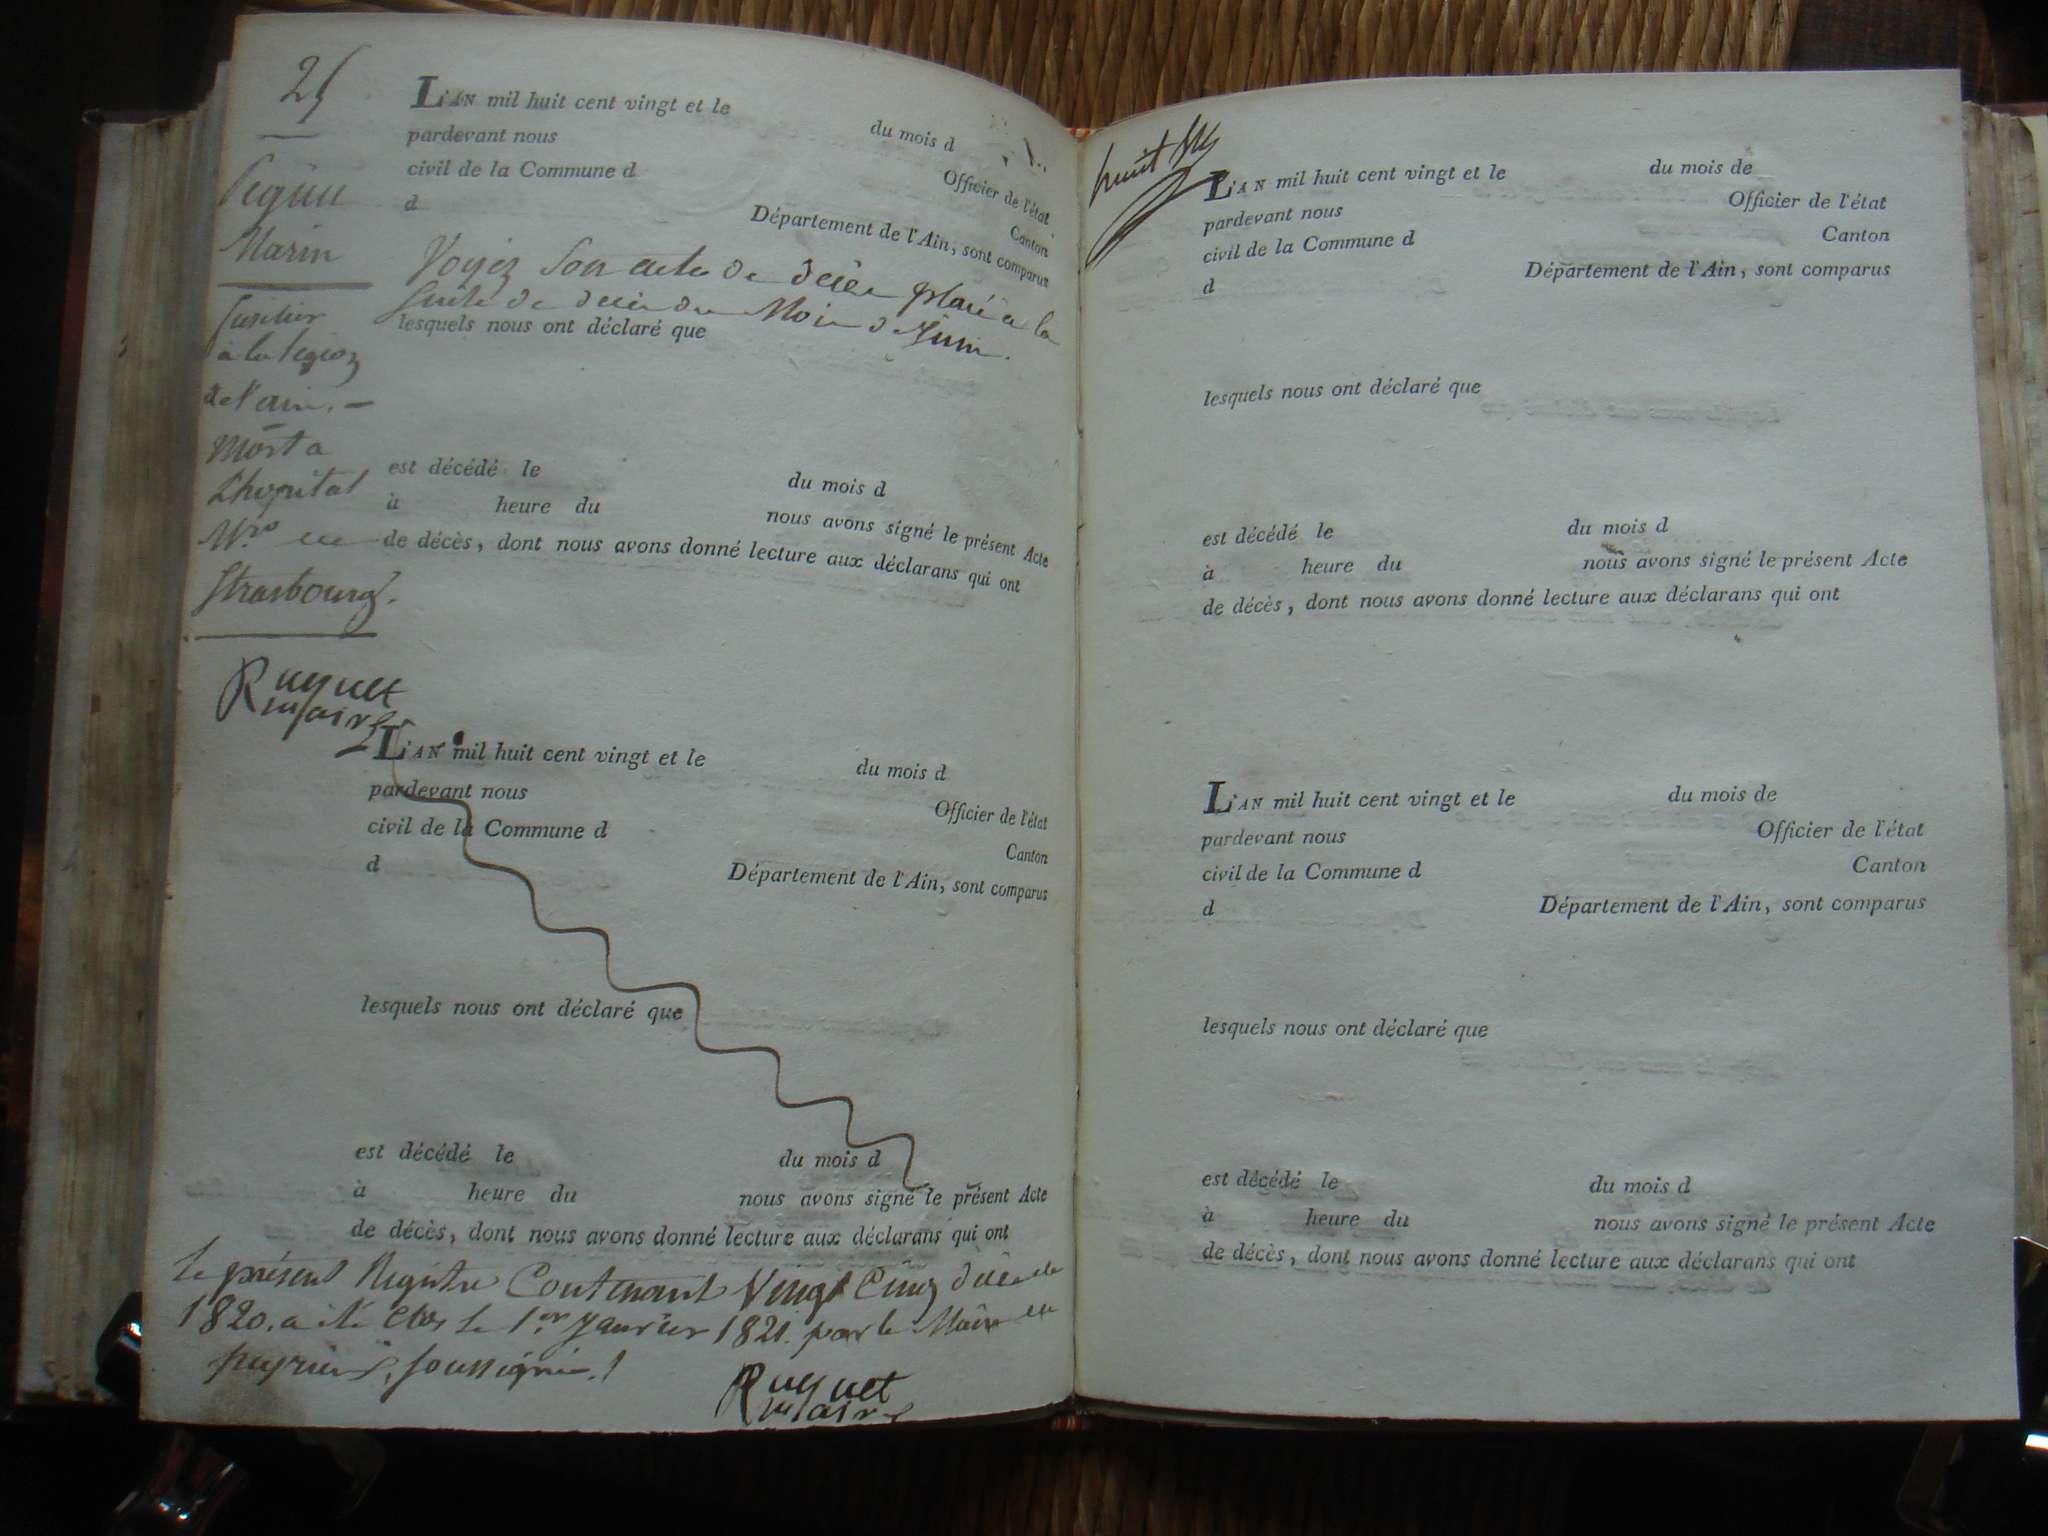 25
L'AN mil huit cent vingt et le du mois d
pardevant nous Officier de l'état
civil de la Commune d Canton
d Département de l'Ain, sont comparus
Marin
Voyez Son acte de décès placé a la
Suite de décès du Mois de Juin.
lesquels nous ont déclaré que
fusilier
à la Légion
de l'ain. —
Mort a
L'hopital
Mre en
Strasbourg.
est décédé le du mois d
à heure du nous avons signé le présent Acte
de décès, dont nous avons donné lecture aux déclarans qui ont
Ruquet
maire
L'AN mil huit cent vingt et le du mois d
pardevant nous Officier de l'état
civil de la Commune d Canton
d Département de l'Ain, sont comparus
lesquels nous ont déclaré que
est décédé le du mois d
à heure du nous avons signé le présent Acte
de décès, dont nous avons donné lecture aux déclarans qui ont
Le présent Registre Contenant Vingt Cinq décès de
1820. a été clos le 1er Janvier 1821. par le Maire
soussigné.
Ruquet
maire
huit
L'AN mil huit cent vingt et le du mois de
pardevant nous Officier de l'état
civil de la Commune d Canton
d Département de l'Ain, sont comparus
lesquels nous ont déclaré que
est décédé le du mois d
à heure du nous avons signé le présent Acte
de décès, dont nous avons donné lecture aux déclarans qui ont
L'AN mil huit cent vingt et le du mois de
pardevant nous Officier de l'état
civil de la Commune d Canton
d Département de l'Ain, sont comparus
lesquels nous ont déclaré que
est décédé le du mois d
à heure du nous avons signé le présent Acte
de décès, dont nous avons donné lecture aux déclarans qui ont